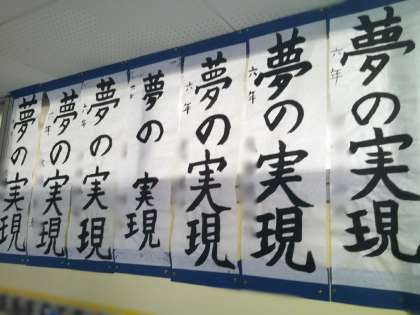 夢の実現
六年
夢の実現
六年
夢の実現
六年
夢の実現
夢の実現
六年
夢の実現
六年
夢の実現